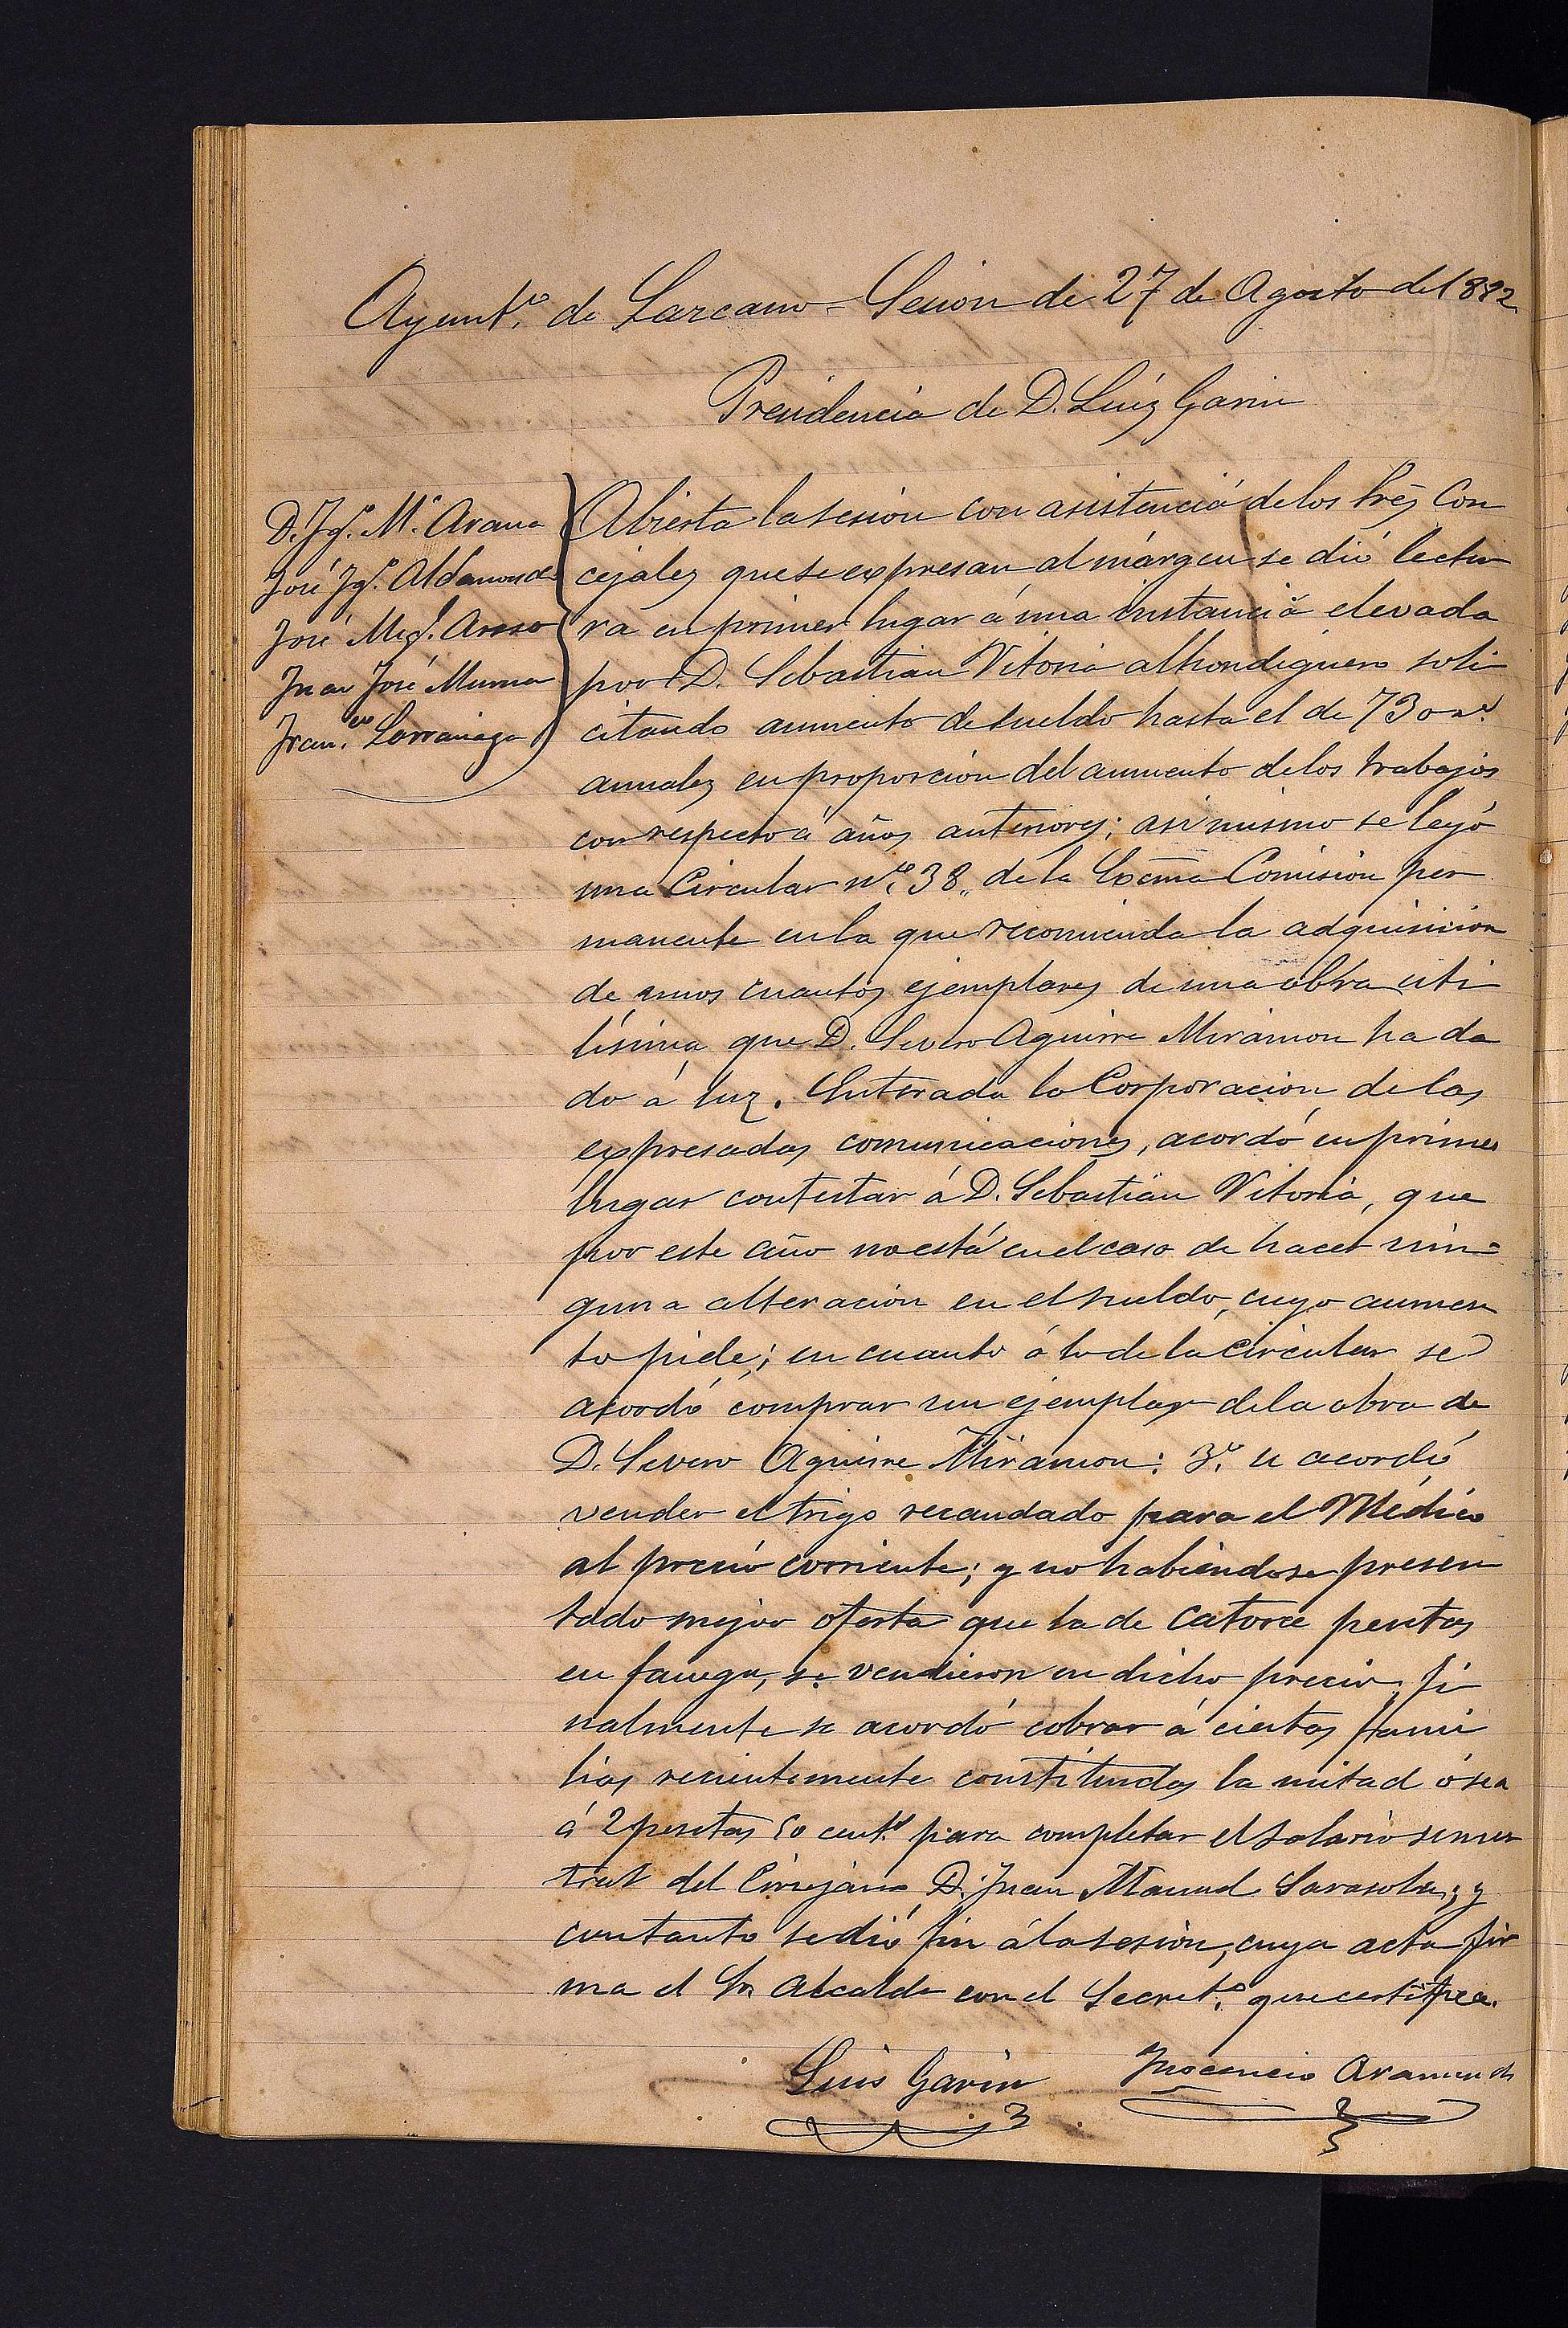 Ayunt.º de Lazcano = Sesion de 27 de Agosto de 1882
Presidencia de D. Luiz Garin
D. Jg.º M.ª Arana
José Jg.º Aldamonde
José Mig.l Arano
Juan José Murua
Fran.co Larrañaga
Abierta la sesion con asistencia de los Sres Con
cejales que se expresan al márgen se dió lectu
ra en primer lugar á una instancia elevada
por D. Sebastian Vitoria alhondiguero soli
citando aumento de sueldo hasta el de 730 r.s
anuales en proporcion del aumento de los trabajos
con respecto á años anteriores; asi mismo se leyó
una Circular n.º 38,, de la Excma Comision per
manente en la que recomienda la adquisicion
de unos cuantos ejemplares de una obra uti
lísima que D. Severo Aguirre Miramon ha da
do á luz. Enterada la Corporacion de las
expresadas comunicaciones, acordó en primer
lugar contestar á D. Sebastián Vitoria, que
por este año no está en el caso de hacer nin=
guna alteracion en el sueldo, cuyo aumen
to pide; en cuanto á lo de la Circular se
acordó comprar un ejemplar de la obra de
D. Severo Aguirre Miramon: 3.º se acordó
vender el trigo recaudado para el Médico
al precio corriente; y no habiéndose presen
tado mejor oferta que la de catorce pesetas
en fanega, se vendieron en dicho precio. Fi
nalmente se acordó cobrar á ciertas fami
lias recientemente constituidas la mitad ó sea
á 2 pesetas 50 cent.s para completar el salario semes
tral del Cirujano D. Juan Manuel Sarasola; y
con tanto se dió fin á la sesion, cuya acta fir
ma el Sr Alcalde con el Secret.º que certifica.
Luis Garin
Inocencio Aramendi